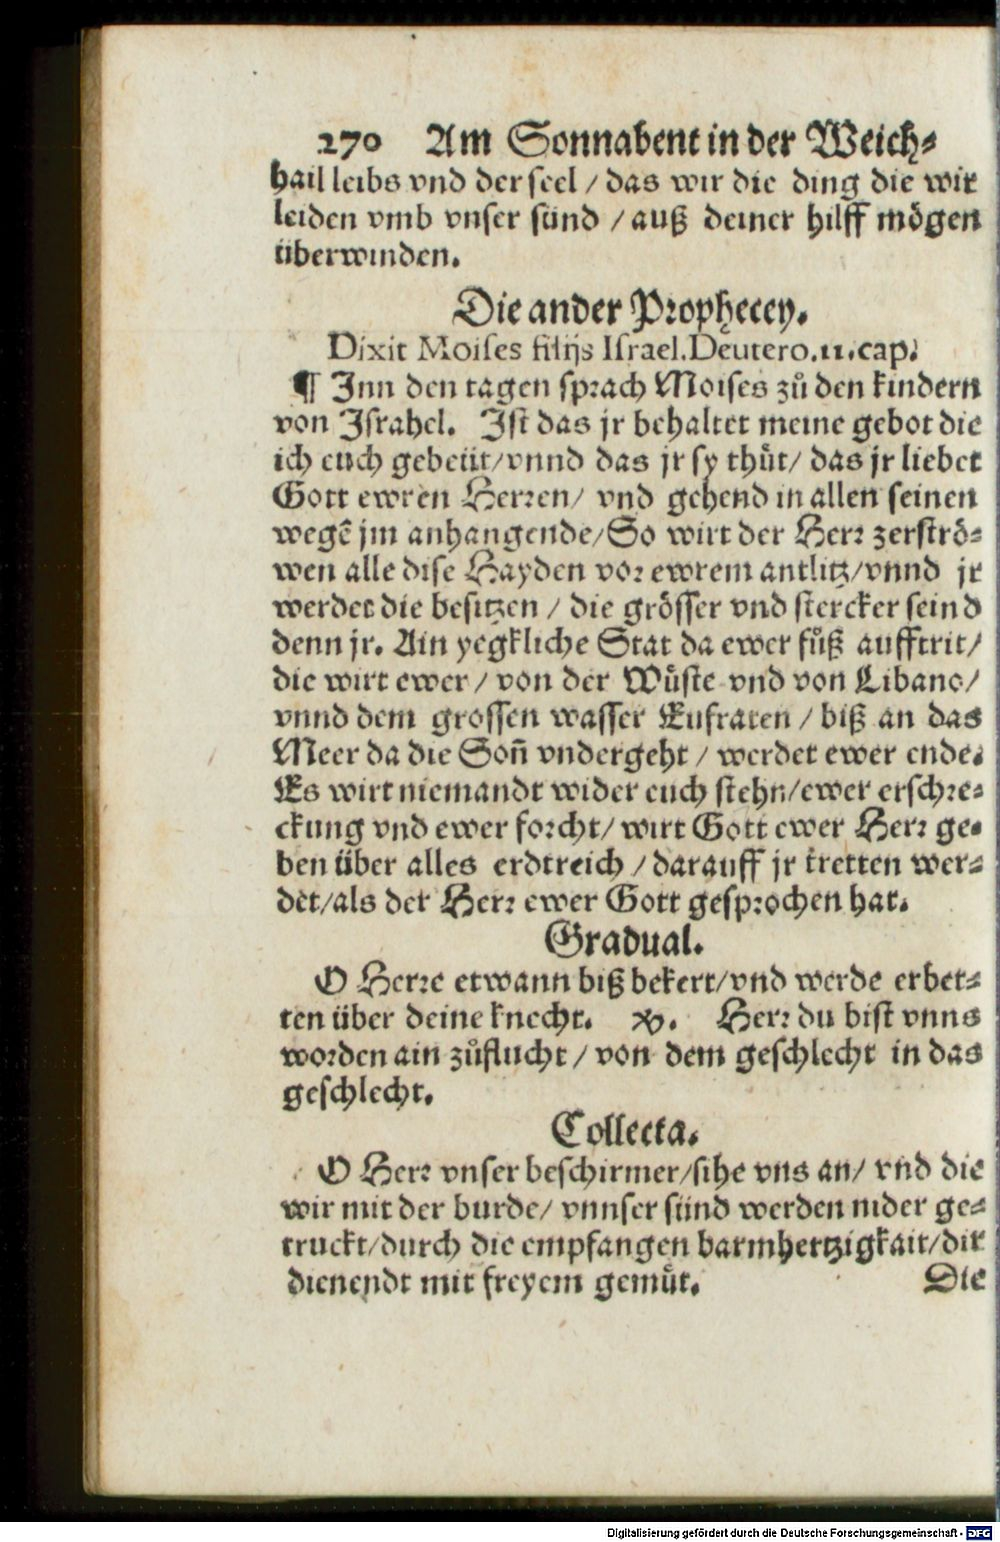 270 Am Sonnabent in der Weich⸗
hail leibs vnd der seel / das wir die ding die wir
leiden vmb vnser sünd / auß deiner hilff mögen
überwinden.
Die ander Prophecey.
Dixit Moises filijs Israel. Deutero. 11. cap.
¶ Inn den tagen sprach Moises zů den kindern
von Israhel. Ist das jr behaltet meine gebot die
ich euch gebeüt / vnnd das jr sy thůt / das jr liebet
Gott ewren Herren / vnd gehend in allen seinen
wegẽ jm anhangende / So wirt der Herr zerströ⸗
wen alle dise Hayden vor ewrem antlitz / vnnd jr
werdet die besitzen / die grösser vnd stercker seind
denn jr. Ain yegkliche Stat da ewer fůß aufftrit /
die wirt ewer / von der Wůste vnd von Libano /
vnnd dem grossen wasser Eufraten / biß an das
Meer da die Soñ vndergeht / werdet ewer ende.
Es wirt niemandt wider euch stehn / ewer erschre⸗
ckung vnd ewer forcht / wirt Gott ewer Herr ge⸗
ben über alles erdtreich / darauff jr tretten wer⸗
det / als der Herr ewer Gott gesprochen hat.
Gradual.
O Herre etwann biß bekert / vnd werde erbet⸗
ten über deine knecht. ℣. Herr du bist vnns
worden ain zůflucht / von dem geschlecht in das
geschlecht.
Collecta.
O Herr vnser beschirmer / sihe vns an / vnd die
wir mit der burde / vnnser sünd werden nider ge⸗
truckt / durch die empfangen barmhertzigkait / dir
dienendt mit freyem gemůt. Die
Digitalisierung gefördert durch die Deutsche Forschungsgemeinschaft - DFG